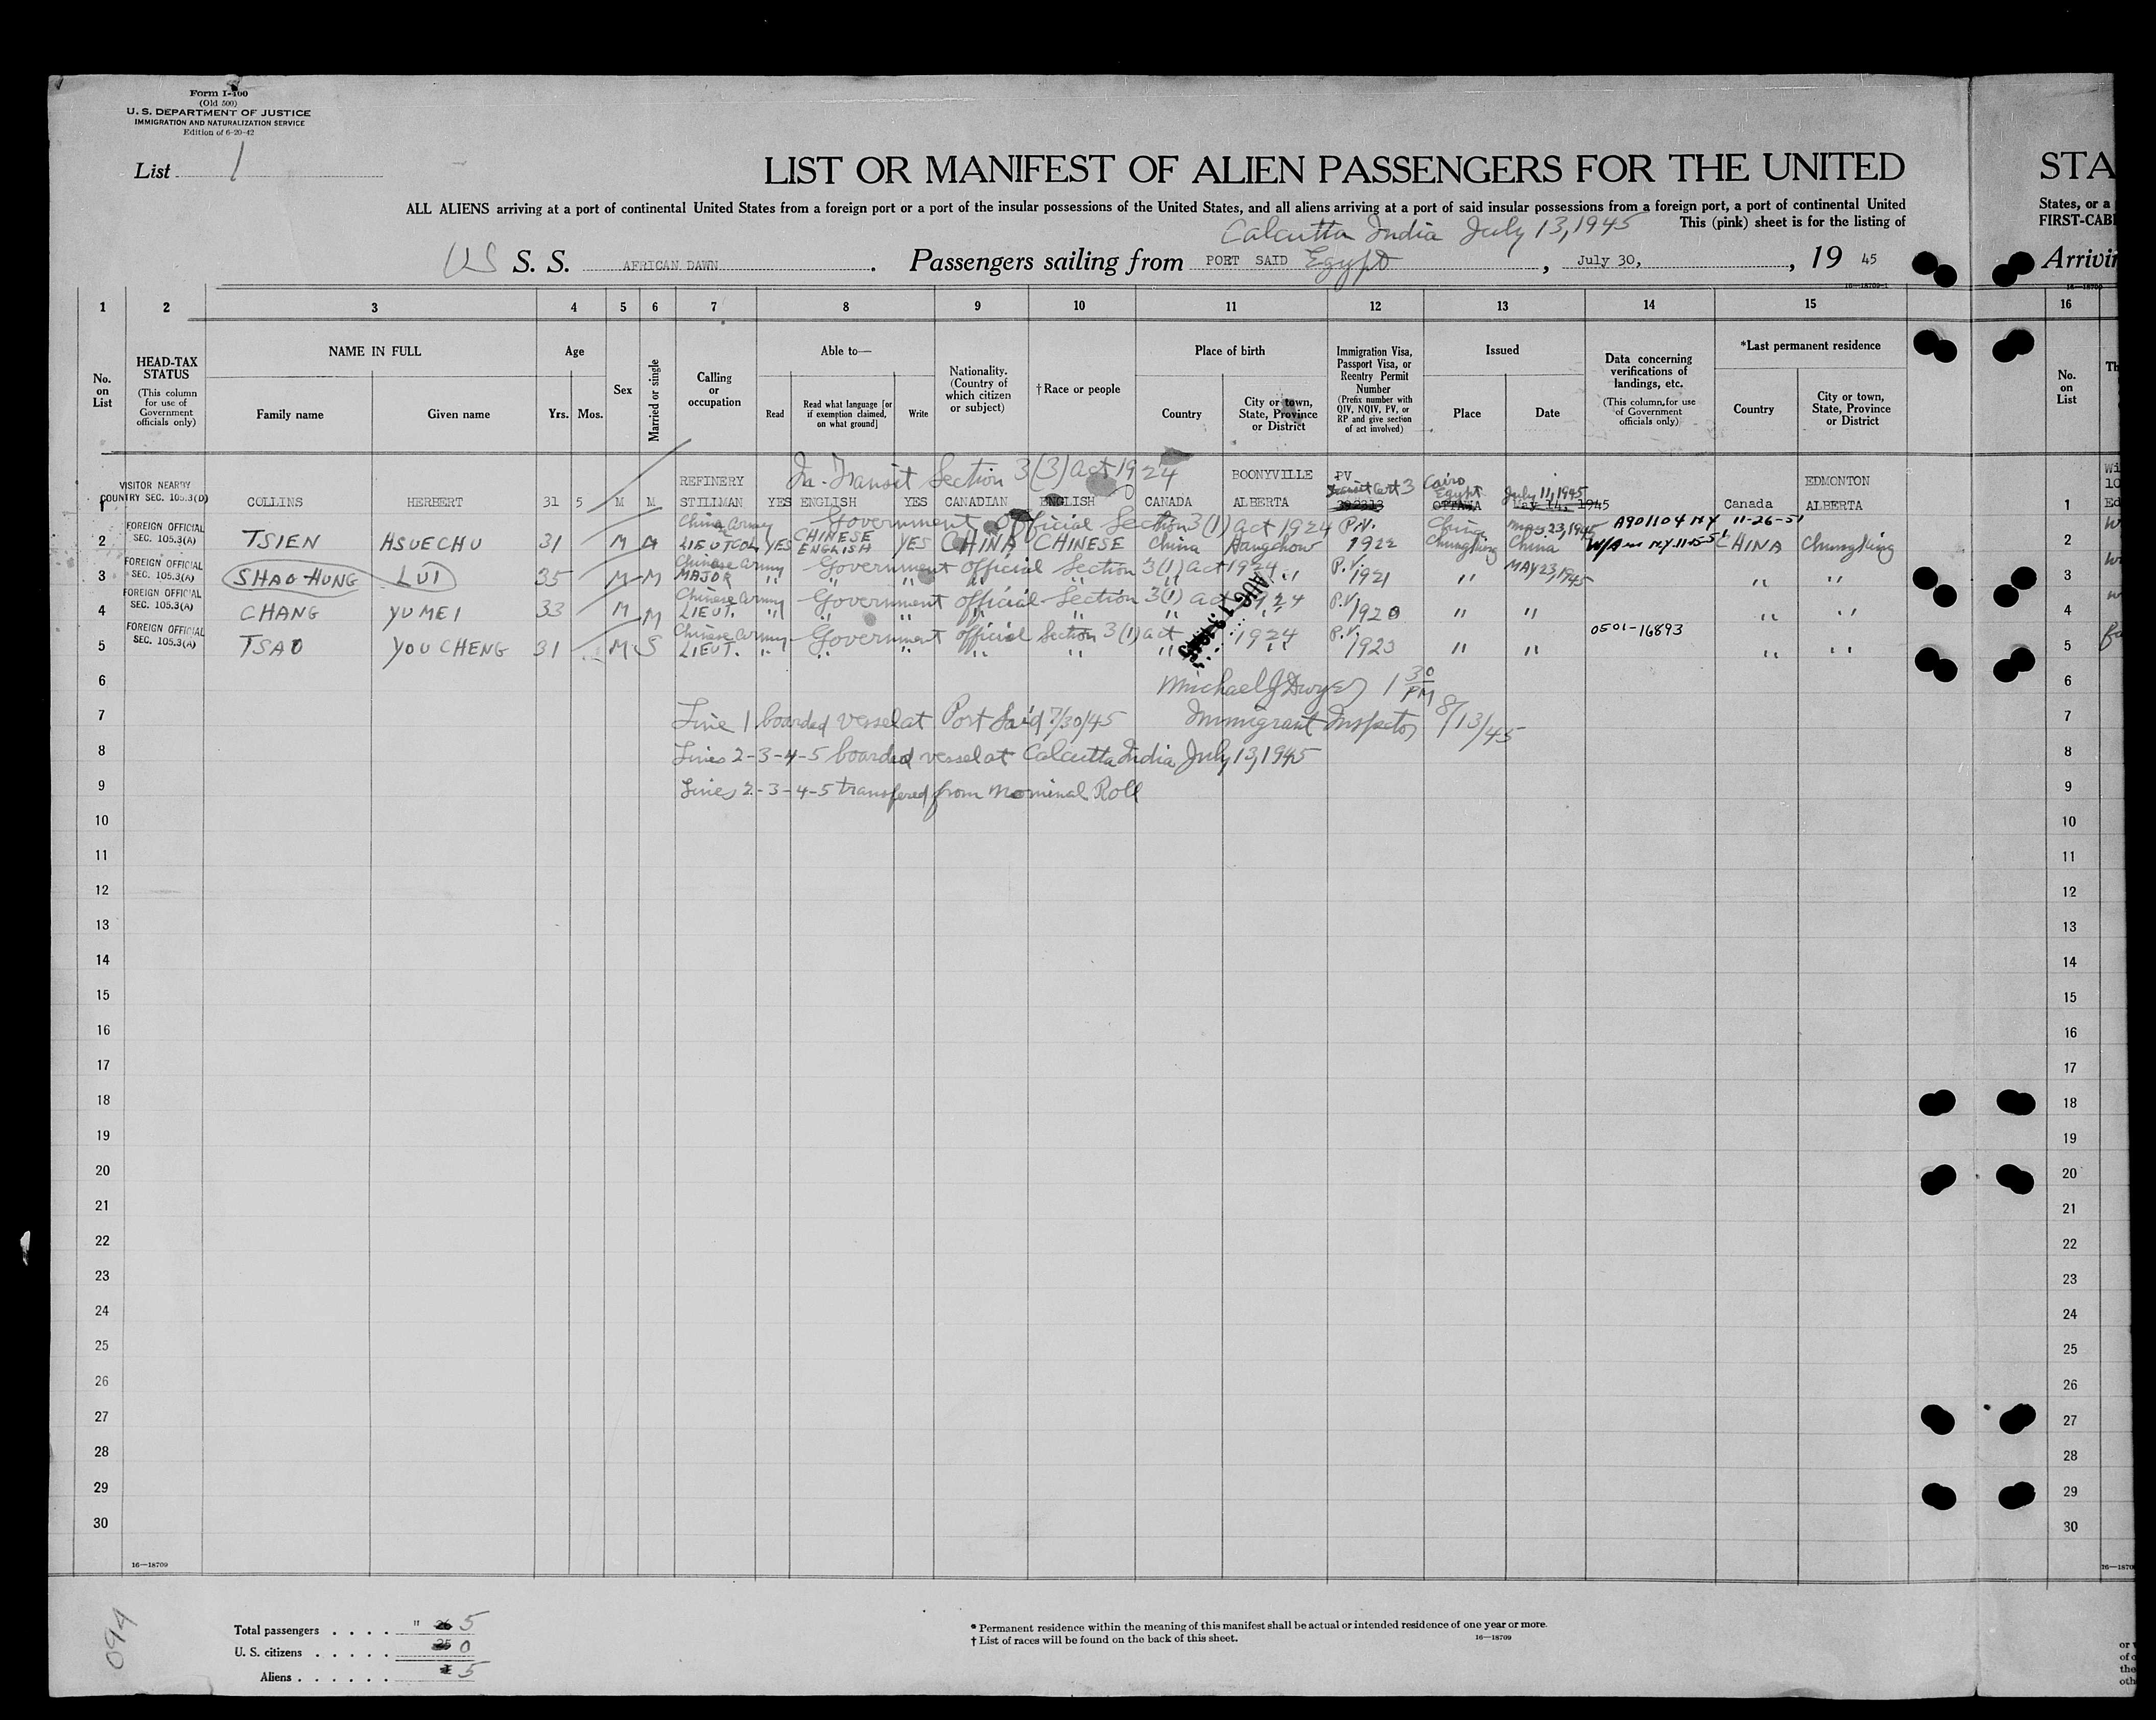 Form I-400
(Old 500)
U. S. DEPARTMENT OF JUSTICE
IMMIGRATION AND NATURALIZATION SERVICE
Edition of 6-20-42
List 1
LIST OR MANIFEST OF ALIEN PASSENGERS FOR THE UNITED STA
ALL ALIENS arriving at a port of continental United States from a foreign port or a port of the insular possessions of the United States, and all aliens arriving at a port of said insular possessions from a foreign port, a port of continental United States, or a
This (pink) sheet is for the listing of FIRST-CABI
Calcutta India July 13, 1945
US S. S. AFRICAN DAWN. Passengers sailing from PORT SAID Egypt, July 30, , 19 45 Arrivin
16—18709-1
1 2 3 4 5 6 7 8 9 10 11 12 13 14 15 16
No. on List
HEAD-TAX STATUS (This column for use of Government officials only)
NAME IN FULL Family name Given name
Age Yrs. Mos.
Sex
Married or single
Calling or occupation
Able to— Read Read what language [or if exemption claimed, on what ground] Write
Nationality. (Country of which citizen or subject)
† Race or people
Place of birth Country City or town, State, Province or District
Immigration Visa, Passport Visa, or Reentry Permit Number (Prefix number with QIV, NQIV, PV, or RP and give section of act involved)
Issued Place Date
Data concerning verifications of landings, etc. (This column for use of Government officials only)
*Last permanent residence Country City or town, State, Province or District
No. on List
In-Transit Section 3(3) act 1924
VISITOR NEARBY REFINERY BOONYVILLE PV Transit Cert 3 Cairo Egypt July 11, 1945 EDMONTON
1 COUNTRY SEC. 105.3(D) COLLINS HERBERT 31 5 M M STILLMAN YES ENGLISH YES CANADIAN ENGLISH CANADA ALBERTA OTTAWA May 14, 1945 Canada ALBERTA 1
FOREIGN OFFICIAL China Army Government Official Section 3(1) act 1924 P.V. China May 23, 1945 A901104 NY 11-26-51
2 SEC. 105.3(A) TSIEN HSUECHU 31 M M LIEUT COL YES CHINESE ENGLISH YES CHINA CHINESE China Hangchow 1922 Chungking China CHINA Chungking 2
FOREIGN OFFICIAL Chinese Army Government official Section 3(1) act 1924 P.V. MAY 23, 1945
3 SEC. 105.3(A) SHAO-HUNG LUI 35 M M MAJOR " " " " " " " " 1921 " " " 3
FOREIGN OFFICIAL Chinese Army Government official Section 3(1) act 1924 P.V.
4 SEC. 105.3(A) CHANG YU MEI 33 M M LIEUT. " " " " " " " 1920 " " " " 4
FOREIGN OFFICIAL Chinese Army Government official Section 3(1) act 1924 P.V. 0501-16893
5 SEC. 105.3(A) TSAO YOU CHENG 31 M S LIEUT. " " " " " " " 1923 " " " " 5
6 Michael J Dwyer 1 30 PM 6
7 Line 1 boarded vessel at Port Said 7/30/45 Immigrant Inspector 8/13/45 7
8 Lines 2-3-4-5 boarded vessel at Calcutta India July 13, 1945 8
9 Lines 2-3-4-5 transfered from Nominal Roll 9
10 10
11 11
12 12
13 13
14 14
15 15
16 16
17 17
18 18
19 19
20 20
21 21
22 22
23 23
24 24
25 25
26 26
27 27
28 28
29 29
30 30
16—18709
Total passengers . . . . " 26 5
U. S. citizens . . . . . 25 0
Aliens . . . . . . 1 5
* Permanent residence within the meaning of this manifest shall be actual or intended residence of one year or more.
† List of races will be found on the back of this sheet. 16—18709
094